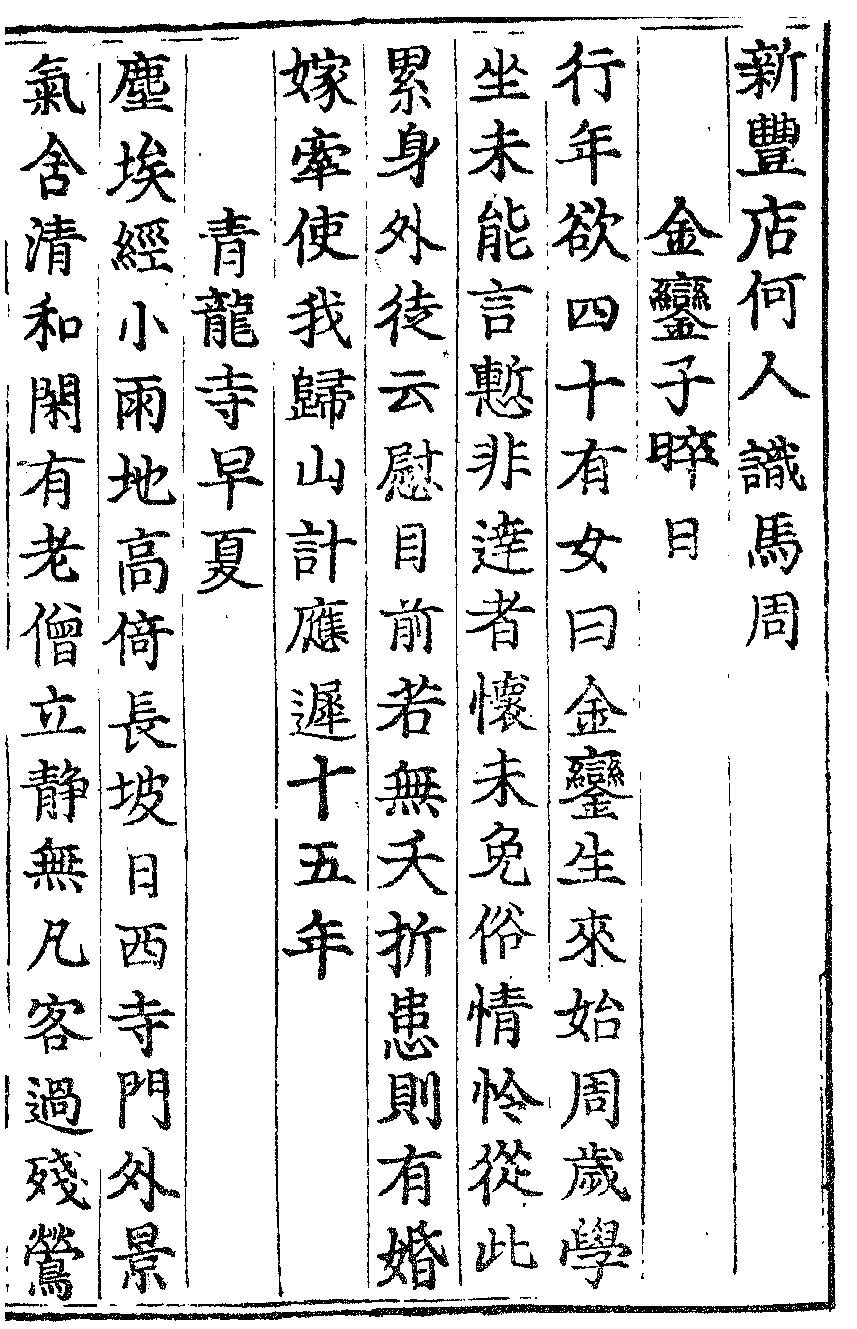 新豐店何人識馬周
金鑾子晬日
行年欲四十有女曰金鑾生來始周歲學
坐未能言慙非達者懷未免俗情怜從此
累身外徒云慰目前若無夭折患則有婚
嫁牽使我歸山計應遲十五年
青龍寺早夏
塵埃經小雨地高倚長坡日西寺門外景
氣含清和閑有老僧立静無凡客過殘鶯